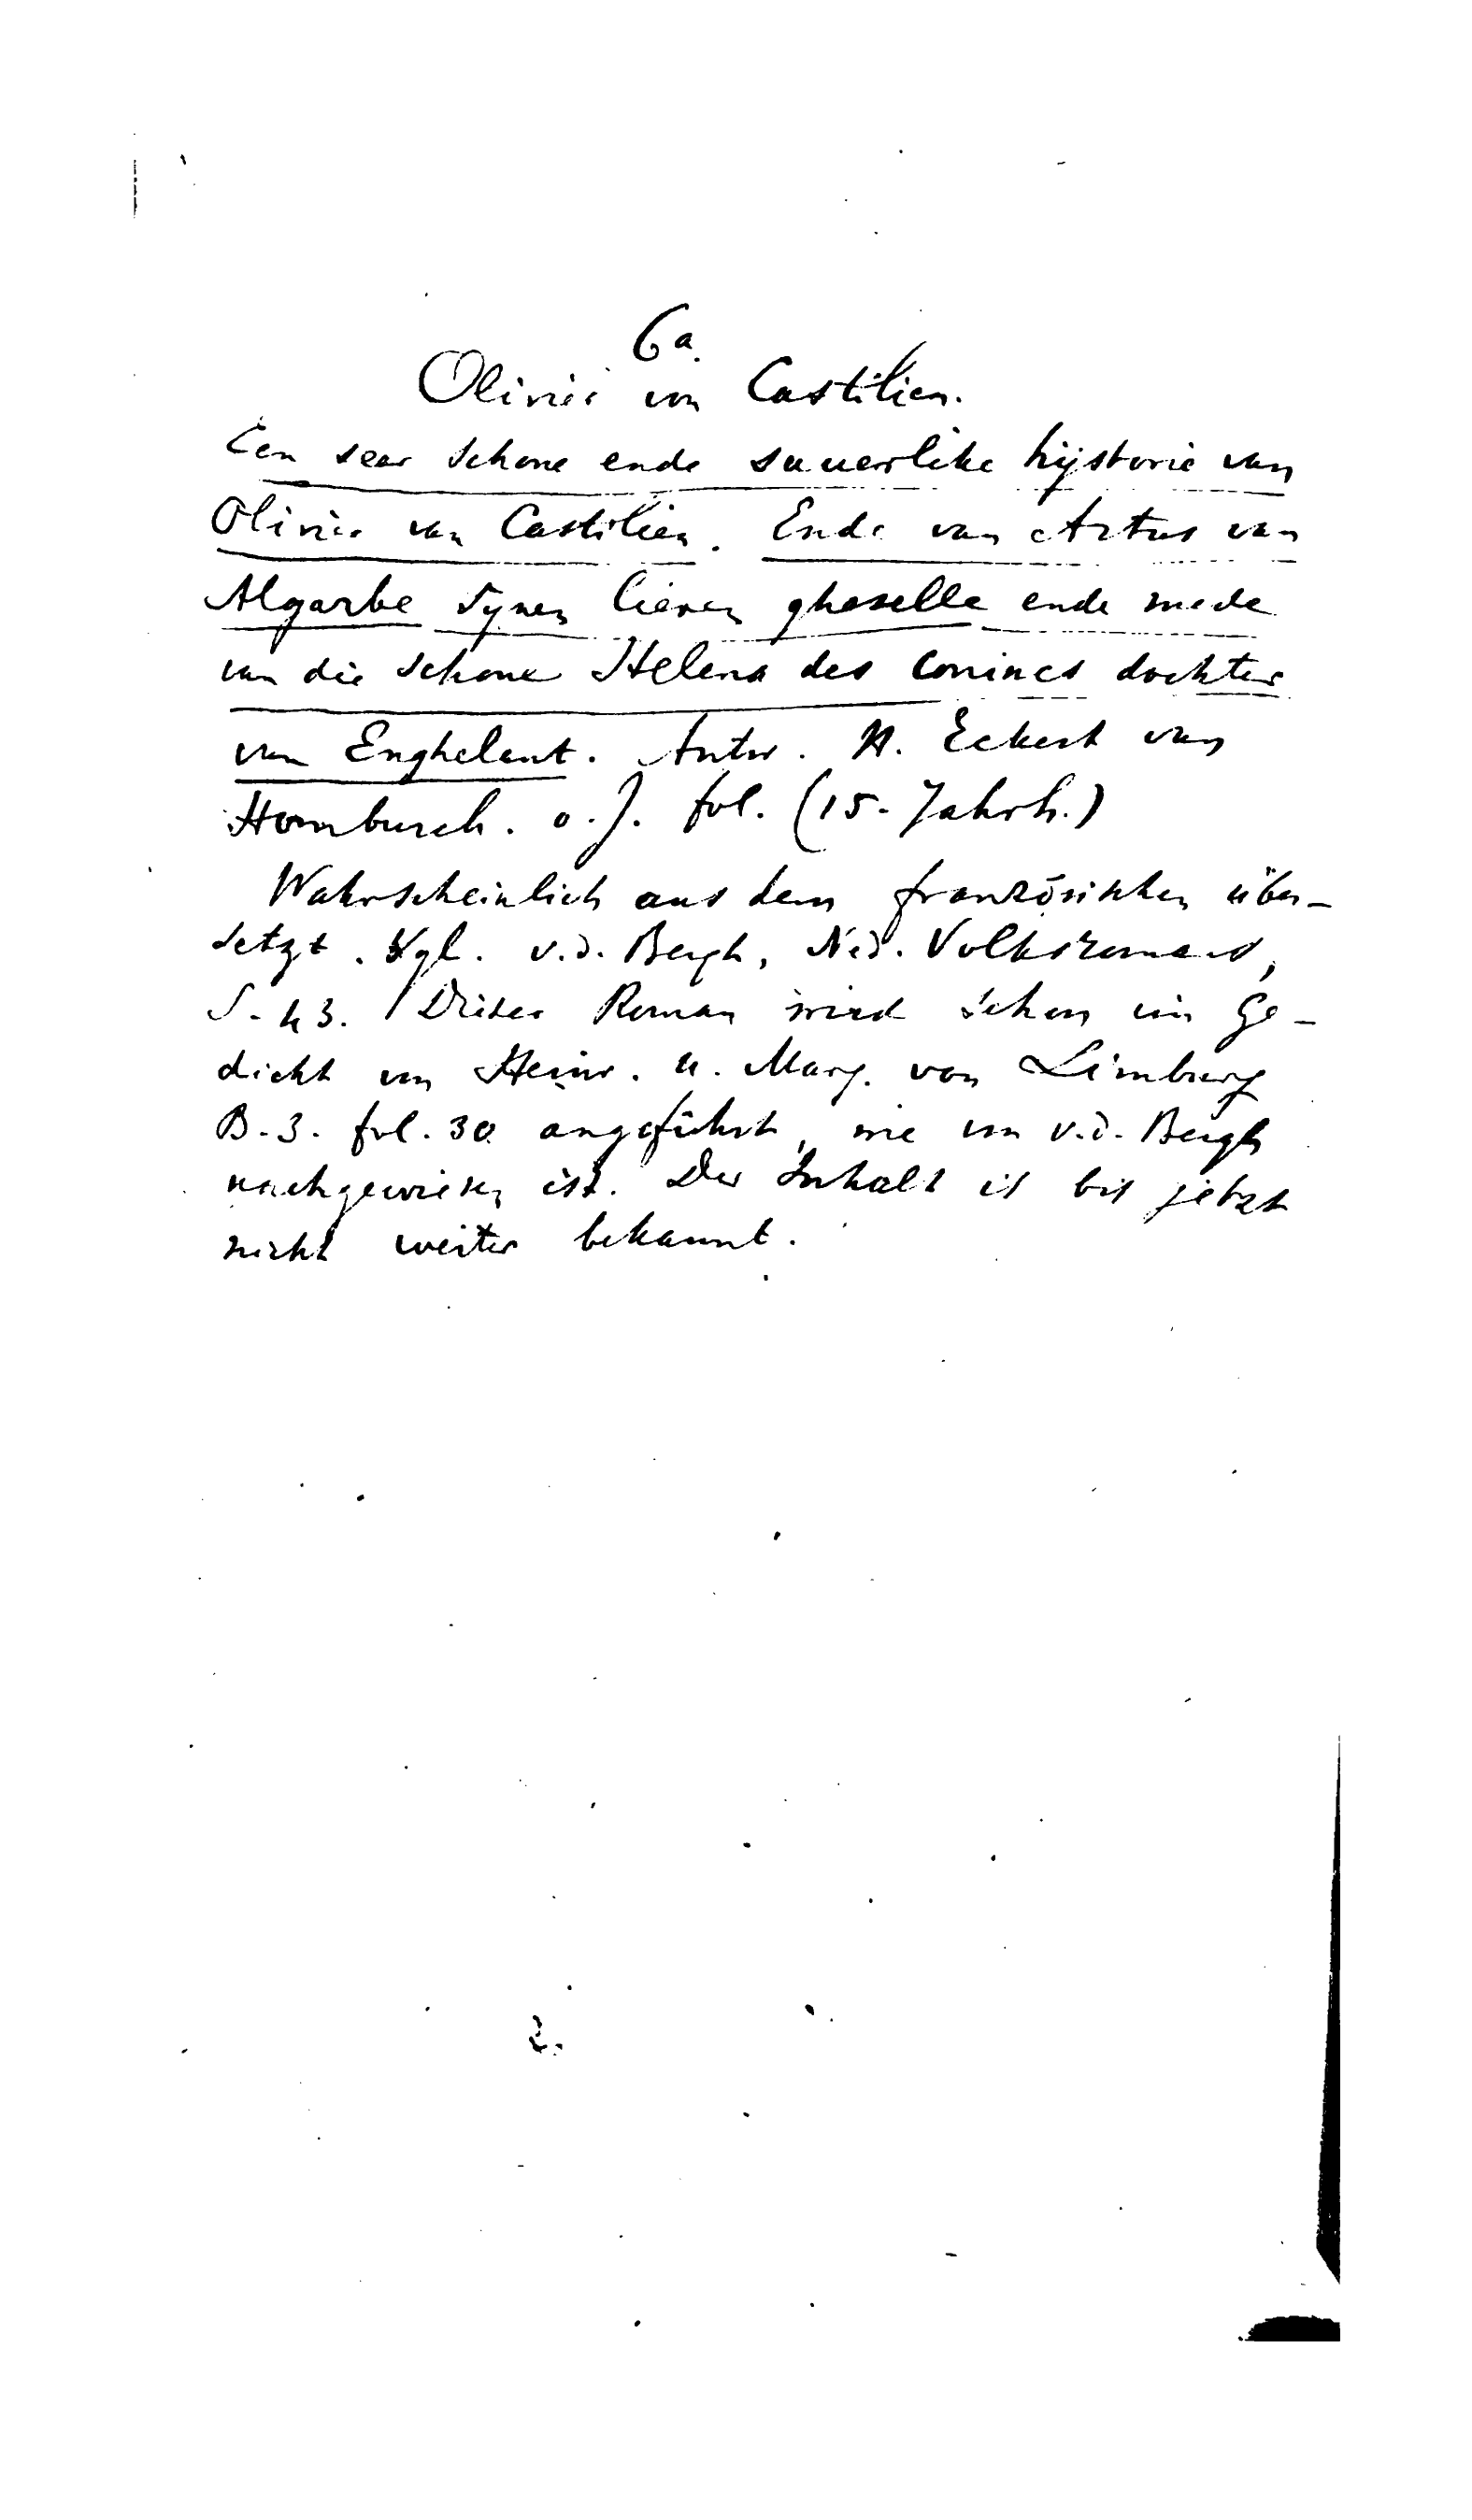 6a.
Olivier von Castilien.
Een seer schone ende suuerlike hijstorie van
Olivier van Castilien. Ende van Artus van
Algarbe synen lieven gheselle ende mede
van die schone Helena des conincs dochter
van Enghelant. Antw. H. Eckert van
Homburch. o. J. fol. (15. Jahrh.)
Wahrscheinlich aus dem französischen über-
setzt. Vgl. v. d. Bergh, Ned. Volksromans,
S. 43. Dieser Roman wird schon im Ge-
dicht von Heinr. u. Marg. von Limburg
B. 3. fol. 30 angeführt, wie von v. d. Bergh
nachgewiesen ist. Der Inhalt ist bis jetzt
nicht weiter bekannt.